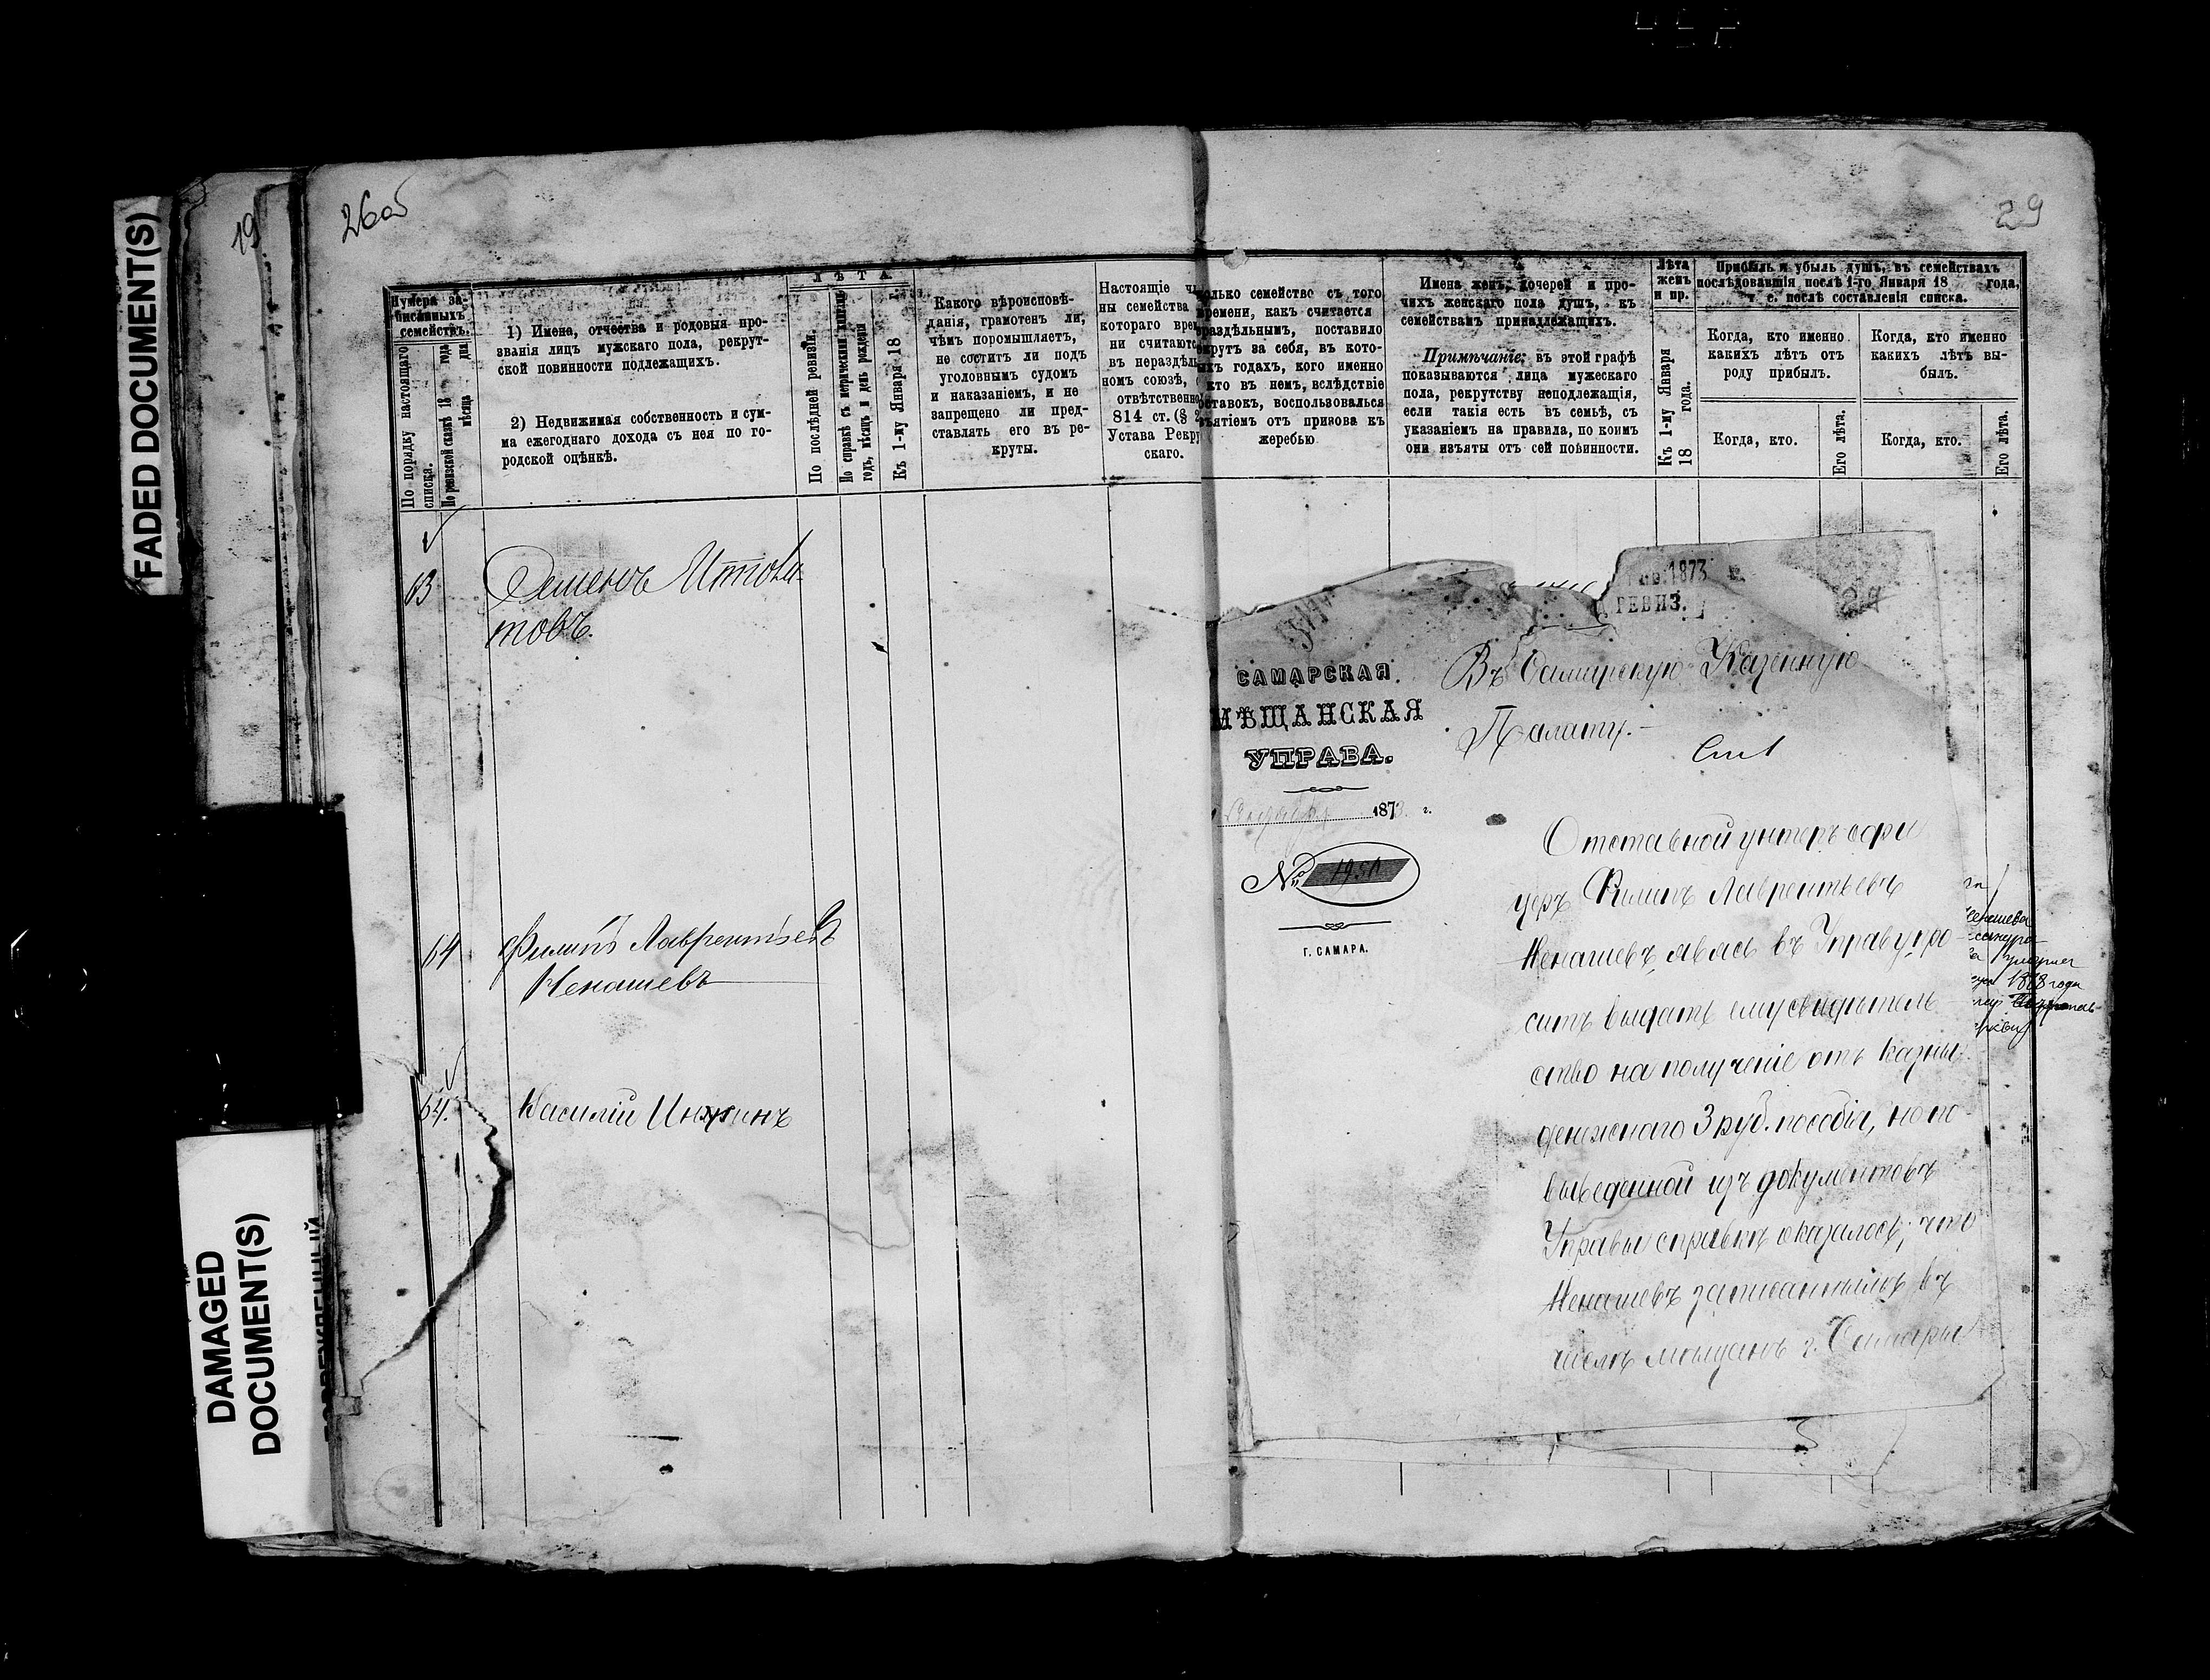 FADED DOCUMENT(S)
DAMAGED
DOCUMENT(S)
19
26об
29
Нумера за-
писанныхъ
семействъ.
По порядку настоящаго
списка.
По ревизской сказкѣ 18 года
мѣсяца дня
1) Имена, отчества и родовыя про-
званія лицъ мужскаго пола, рекрут-
ской повинности подлежащихъ.
2) Недвижимая собственность и сум-
ма ежегоднаго дохода съ нея по го-
родской оцѣнкѣ.
ЛѢТА
По послѣдней ревизіи.
По справкѣ съ метрическими книгами
годъ, мѣсяцъ и день рожденія
Къ 1-му Января 18 г.
Какого вѣроисповѣ-
данія, грамотенъ ли,
чѣмъ поромышляетъ,
не соститъ ли подъ
уголовнымъ судомъ
и наказаніемъ, и не
запрещено ли пред-
ставлять его въ ре-
круты.
Настоящіе
ны семейства
котораго
ни считаютс
въ нераздѣль-
номъ союзѣ,
отвѣтственно
814 ст. (§ 2
Устава Рекру
скаго.
олько семейство съ того
ремени, какъ считается
раздѣльнымъ, поставило
крутъ за себя, въ кото-
ыхъ годахъ, кого именно
кто въ немъ, вслѣдствіе
ставокъ, воспользовался
ъятіемъ отъ призова къ
жеребью
Имена женъ, дочерей и про-
чихъ женскаго пола душъ, къ
семействамъ принадлежащихъ.
Примѣчаніе: въ этой графѣ
показываются лица мужескаго
пола, рекрутству неподлежащія,
если такія есть въ семьѣ, съ
указаніемъ на правила, по коимъ
они изъяты отъ сей повинности.
Лѣта
женъ
и пр.
Къ 1-му Января
18 года.
Прибыль и убыль душъ, въ семействахъ
послѣдовавшія послѣ 1-го Января 18 года,
т. е. послѣ составленія списка.
Когда, кто именно
какихъ лѣтъ отъ
роду прибылъ.
Когда, кто именно
какихъ лѣтъ вы-
былъ.
Когда, кто.
Его лѣта.
Когда, кто.
Его лѣта.
63
Семенъ
товъ.
64
Филипъ Лаврентьевъ
Ненашевъ
64.
Василій
1873
РЕВИЗ.
САМАРСКАЯ
МѢЩАНСКАЯ
УПРАВА.
1873 г.
№ 1951
Г. САМАРА.
Въ Самарскую Казенную
Палату.
Отставной унтеръ офи
церъ Филипъ Лаврентьевъ
Ненашевъ, явясь въ Управу про
ситъ выдать ему свидѣтель
ство на полученіе отъ казны
денежнаго 3 руб. пособія, но по
выведенной изъ документовъ
Управы справкѣ оказалось, что
Ненашевъ въ
числѣ мѣщанъ г. Самары
1878 года